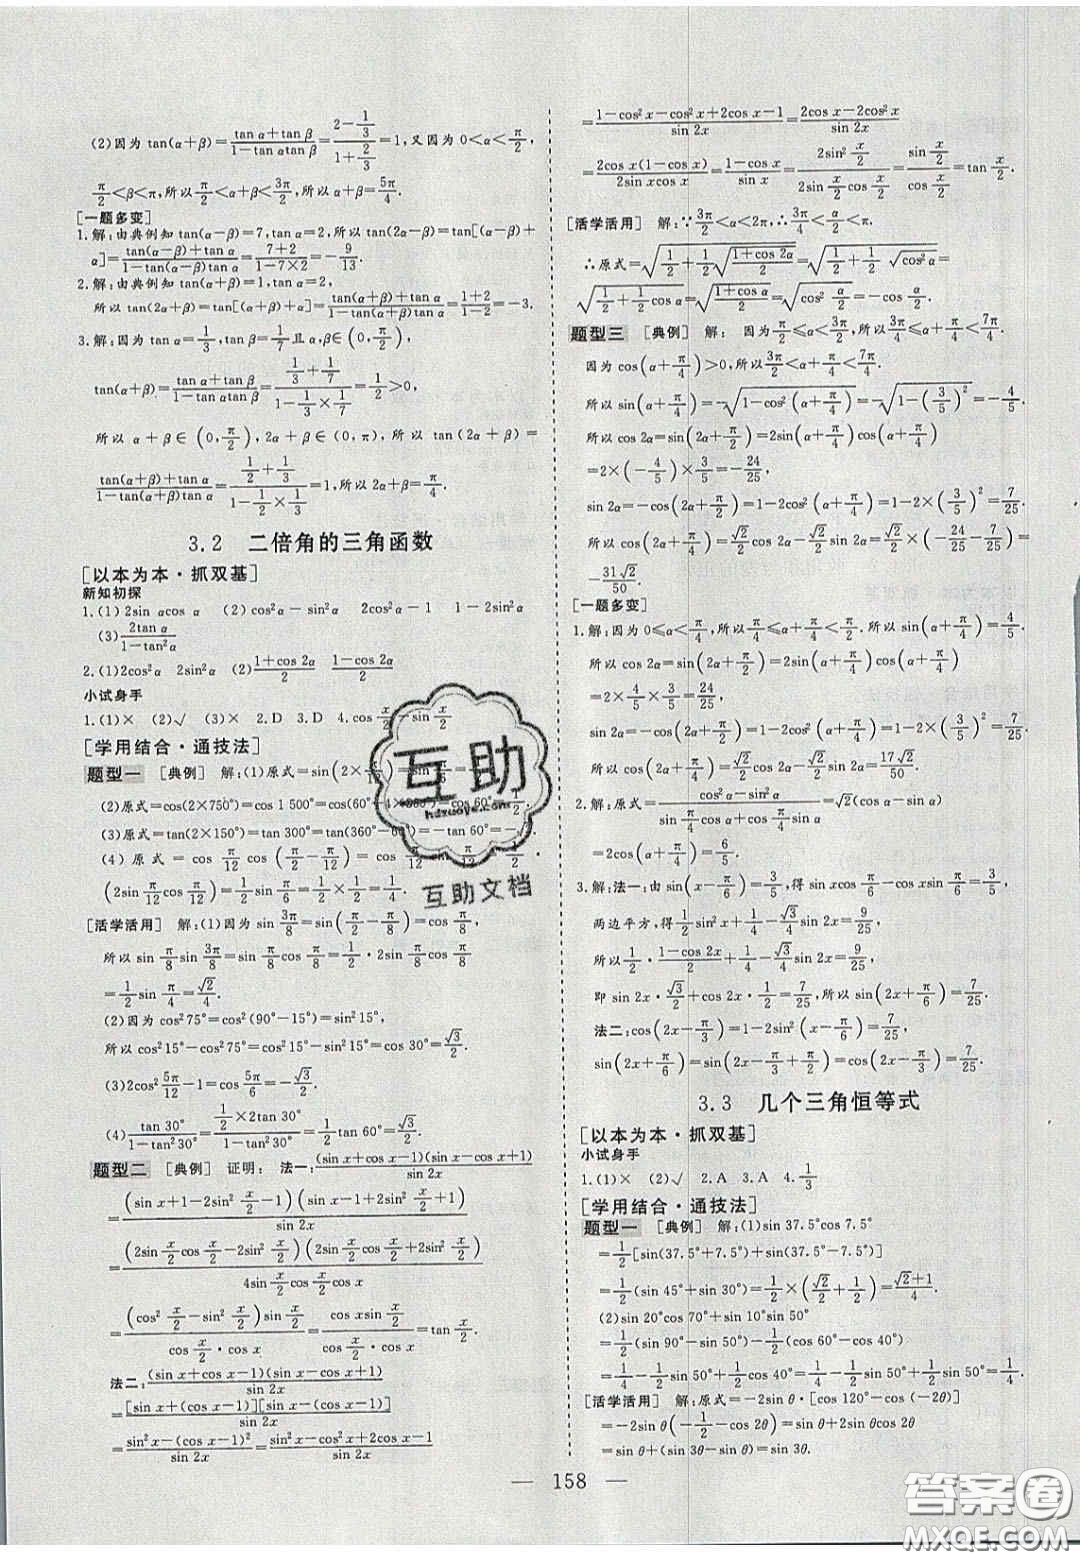 (2)因为 tan(α+β)=(tan α+tan β)/(1−tan αtan β)=(2−1/3)/(1+2/3)=1,又因为 0<α<π/2,
π/2<β<π,所以 π/2<α+β<3π/2,所以 α+β=5π/4.
[一题多变]
1.解:由典例知 tan(α−β)=7,tan α=2,所以 tan(2α−β)=tan[(α−β)+
α]=(tan(α−β)+tan α)/(1−tan(α−β)tan α)=(7+2)/(1−7×2)=−9/13.
2.解:由典例知 tan(α+β)=1,tan α=2,
所以 tan(2α+β)=tan[(α+β)+α]=(tan(α+β)+tan α)/(1−tan(α+β)tan α)=(1+2)/(1−2)=−3.
3.解:因为 tan α=1/3,tan β=1/7 且 α,β∈(0,π/2),
tan(α+β)=(tan α+tan β)/(1−tan αtan β)=(1/3+1/7)/(1−1/3×1/7)=1/2>0,
所以 α+β∈(0,π/2), 2α+β∈(0,π), 所以 tan(2α+β)=
(tan(α+β)+tan α)/(1−tan(α+β)tan α)=(1/2+1/3)/(1−1/2×1/3)=1,所以 2α+β=π/4.
3.2 二倍角的三角函数
[以本为本·抓双基]
新知初探
1.(1)2sin αcos α (2)cos²α−sin²α 2cos²α−1 1−2sin²α
(3)2tan α/(1−tan²α)
2.(1)2cos²α 2sin²α (2)(1+cos 2α)/2 (1−cos 2α)/2
小试身手
1.(1)× (2)√ (3)× 2.D 3.D 4.cos x/2−sin x/2
[学用结合·通技法]
题型一 [典例] 解:(1)原式=sin(2×
(2)原式=cos(2×750°)=cos 1 500°=cos(60°+4×360°)=cos 60°=1/2.
(3)原式=tan(2×150°)=tan 300°=tan(360°−60°)=−tan 60°=−√3.
(4) 原式=cos π/12 cos(π/2−π/12)=cos π/12 sin π/12=1/2·
(2sin π/12cos π/12)=1/2sin π/6=1/2×1/2=1/4.
[活学活用] 解:(1)因为 sin 3π/8=sin(π/2−π/8)=cos π/8,
所以 sin π/8 sin 3π/8=sin π/8 cos π/8=1/2·2sin π/8cos π/8
=1/2sin π/4=√2/4.
(2)因为 cos²75°=cos²(90°−15°)=sin²15°,
所以 cos²15°−cos²75°=cos²15°−sin²15°=cos 30°=√3/2.
(3)2cos² 5π/12−1=cos 5π/6=−√3/2.
(4)tan 30°/(1−tan²30°)=(1/2×2tan 30°)/(1−tan²30°)=1/2tan 60°=√3/2.
题型二 [典例] 证明: 法一:(sin x+cos x−1)(sin x−cos x+1)/sin 2x
=(sin x+1−2sin² x/2−1)(sin x−1+2sin² x/2+1)/sin 2x
=(2sin x/2cos x/2−2sin² x/2)(2sin x/2cos x/2+2sin² x/2)/(4sin x/2cos x/2cos x)
=(cos² x/2−sin² x/2)sin x/2/(cos x/2·cos x)=cos xsin x/2/(cos x/2·cos x)=tan x/2.
法二:(sin x+cos x−1)(sin x−cos x+1)/sin 2x
=[sin x+(cos x−1)][sin x−(cos x−1)]/sin 2x
=(sin²x−(cos x−1)²)/sin 2x=(sin²x−cos²x+2cos x−1)/sin 2x
=(1−cos²x−cos²x+2cos x−1)/sin 2x=(2cos x−2cos²x)/sin 2x
=2cos x(1−cos x)/(2sin xcos x)=(1−cos x)/sin x=2sin² x/2/(2sin x/2cos x/2)=sin x/2/cos x/2=tan x/2.
[活学活用] 解:∵3π/2<α<2π,∴3π/4<α/2<π.
∴原式=√(1/2+1/2√((1+cos 2α)/2))=√(1/2+1/2√(cos²α))=
√(1/2+1/2cos α)=√((1+cos α)/2)=√(cos² α/2)=−cos α/2.
题型三 [典例] 解: 因为 π/2≤α<3π/2,所以 3π/4≤α+π/4<7π/4.
因为 cos(α+π/4)>0,所以 3π/2<α+π/4<7π/4.
所以 sin(α+π/4)=−√(1−cos²(α+π/4))=−√(1−(3/5)²)=−4/5.
所以 cos 2α=sin(2α+π/2)=2sin(α+π/4)cos(α+π/4)
=2×(−4/5)×3/5=−24/25,
sin 2α=−cos(2α+π/2)=1−2cos²(α+π/4)=1−2×(3/5)²=7/25.
所以 cos(2α+π/4)=√2/2cos 2α−√2/2sin 2α=√2/2×(−24/25−7/25)=
−31√2/50.
[一题多变]
1.解:因为 0≤α<π/4,所以 π/4≤α+π/4<π/2.所以 sin(α+π/4)=4/5.
所以 cos 2α=sin(2α+π/2)=2sin(α+π/4)cos(α+π/4)
=2×4/5×3/5=24/25,
sin 2α=−cos(2α+π/2)=1−2cos²(α+π/4)=1−2×(3/5)²=7/25.
所以 cos(2α+π/4)=√2/2cos 2α−√2/2sin 2α=17√2/50.
2.解:原式=(cos²α−sin²α)/(√2/2cos α+√2/2sin α)=√2(cos α−sin α)
=2cos(α+π/4)=6/5.
3.解:法一:由 sin(x−π/6)=3/5,得 √3/2sin x−1/2cos x=3/5,
两边平方,得
所以 1/2·(1−cos 2x)/2+1/4−√3/4sin 2x=9/25.
即 sin 2x·√3/2+cos 2x·1/2=7/25,所以 sin(2x+π/6)=7/25.
法二:cos(2x−π/3)=1−2sin²(x−π/6)=7/25,
sin(2x+π/6)=sin(2x−π/3+π/2)=cos(2x−π/3)=7/25.
3.3 几个三角恒等式
[以本为本·抓双基]
小试身手
1.(1)× (2)√ 2.A 3.A 4.1/3
[学用结合·通技法]
题型一 [典例] 解:(1)sin 37.5°cos 7.5°
=1/2[sin(37.5°+7.5°)+sin(37.5°−7.5°)]
=1/2(sin 45°+sin 30°)=1/2×(√2/2+1/2)=(√2+1)/4.
(2)sin 20°cos 70°+sin 10°sin 50°
=1/2(sin 90°−sin 50°)−1/2(cos 60°−cos 40°)
=1/4−1/2sin 50°+1/2cos 40°=1/4−1/2sin 50°+1/2sin 50°=1/4.
[活学活用] 解:原式=−2sin θ·[cos 120°−cos(−2θ)]
=−2sin θ(−1/2−cos 2θ)=sin θ+2sin θcos 2θ
=sin θ+(sin 3θ−sin θ)=sin 3θ.
— 158 —
互助
hdzuoye.com
互助文档
答案圈
MXQE.COM